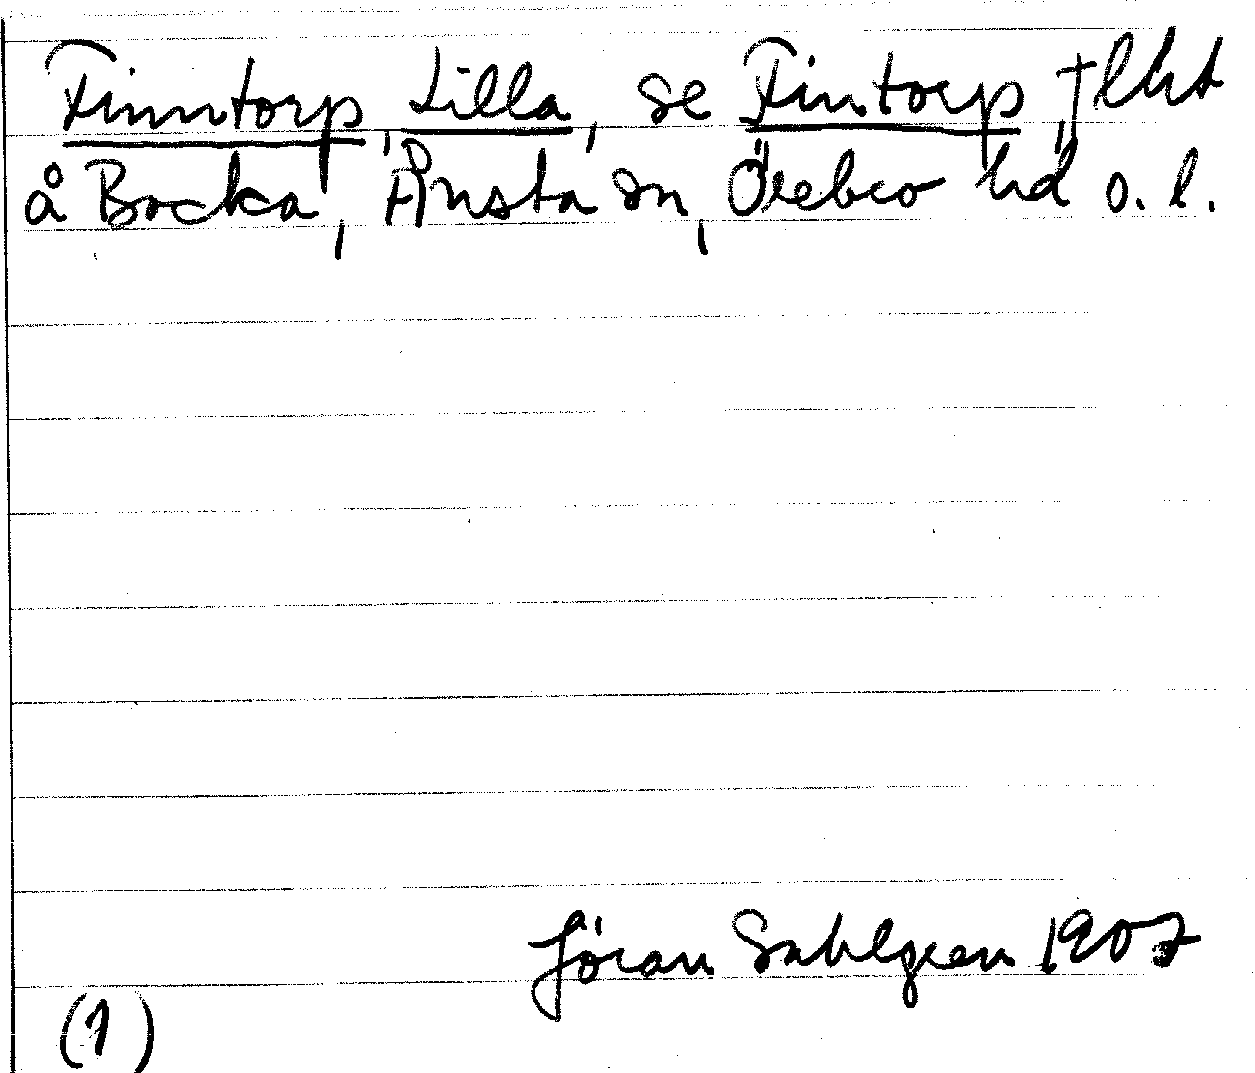 Finntorp, Lilla, se Fintorp, †lht
å Bocka, Ånsta sn, Örebro hd o. l.
Jöran Sahlgren 1907
(1)